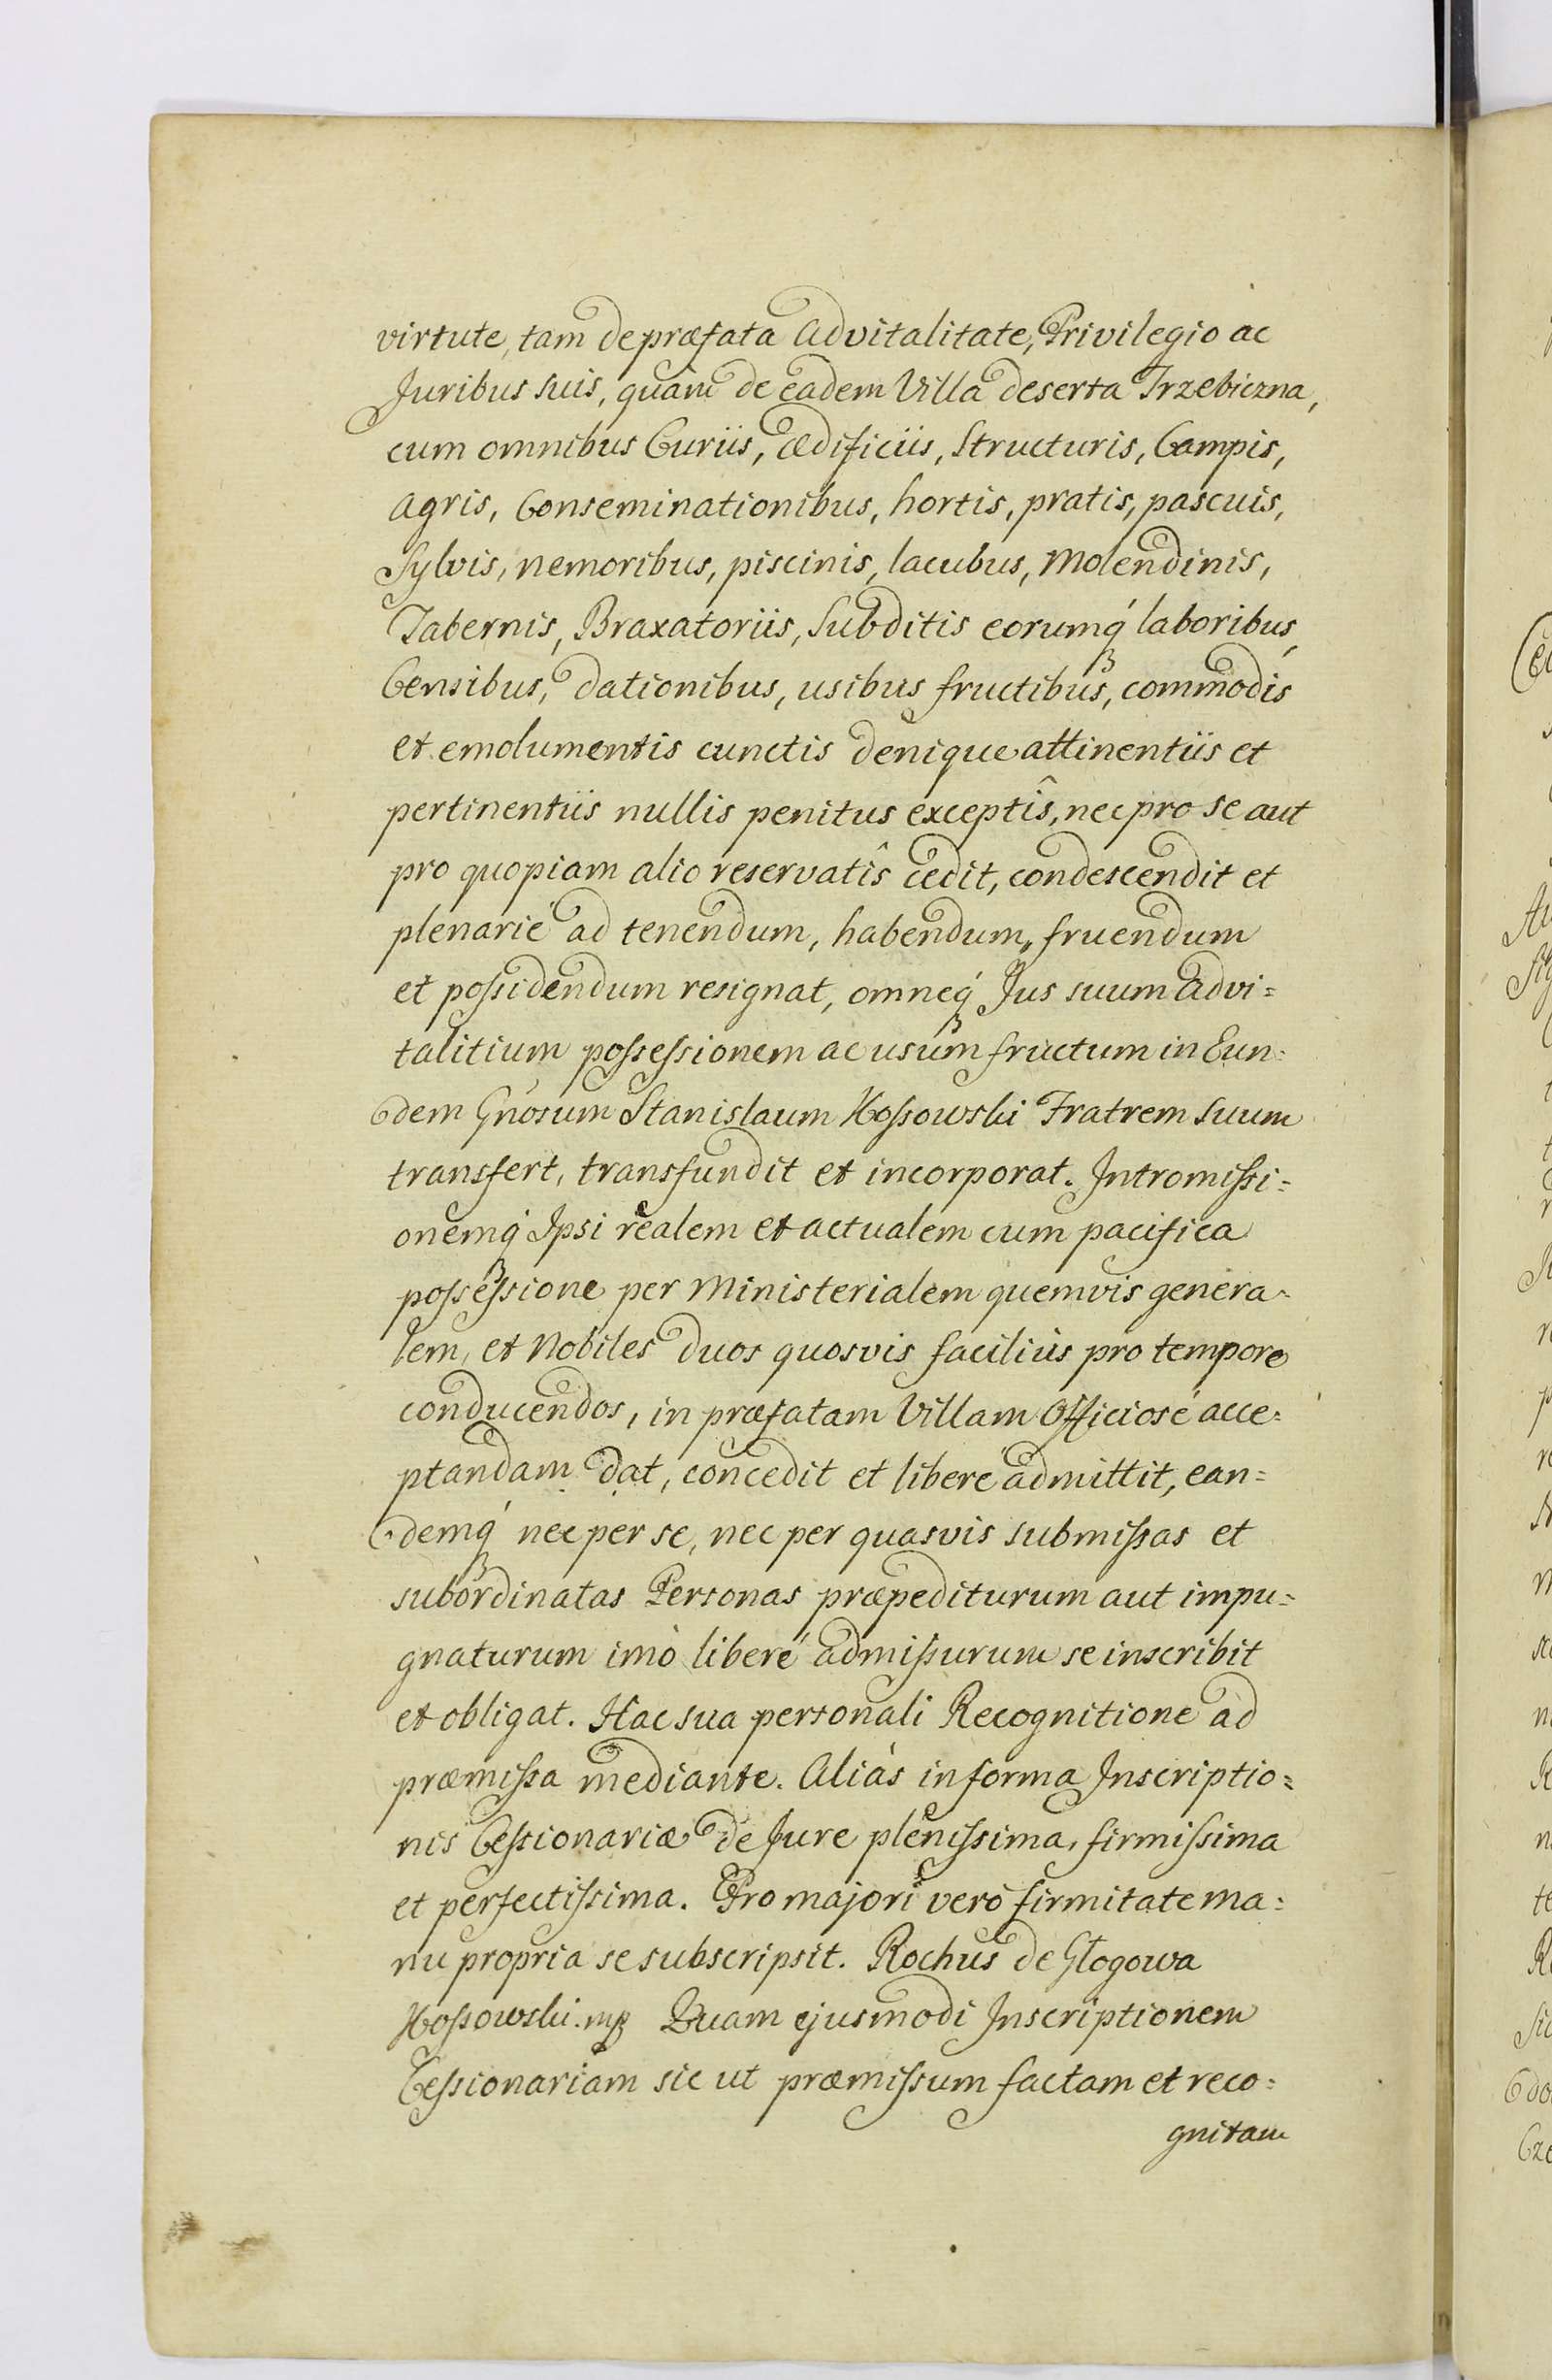 virtute, tam de præfata Advitalitate, Privilegio ac
Juribus suis, quàm de eadem Villa deserta Trzebiczna,
cum omnibus Curiis, ædificiis, Structuris, Campis,
agris, Conseminationibus, hortis, pratis, pascuis,
Sylvis, nemoribus, piscinis, lacubus, Molendinis,
Tabernis, Braxatoriis, Subditis eorumq́ laboribus,
Censibus, dationibus, usibus fructibus, commodis
et emolumentis cunctis denique attinentiis et
pertinentiis nullis penitus exceptîs, nec pro se aut
pro quopiam alio reservatîs cedit, condescendit et
plenariè ad tenendum, habendum, fruendum
et possidendum resignat, omneq́ Jus suum advi=
talitium possessionem ac usum fructum in Eun=
dem Gnosum Stanislaum Kossowski Fratrem Suum
transfert, transfundit et incorporat. Intromissi=
onemq́ Ipsi realem et actualem cum pacifica
possessione per Ministerialem quemvis genera=
lem, et Nobiles duos quosvis faciliùs pro tempore
conducendos, in præfatam Villam Officiosè acce=
ptandam dat, concedit et liberè admittit, ean=
demq́ nec per se, nec per quasvis submissas et
subordinatas Personas præpediturum aut impu=
gnaturum imò liberè admissurum se inscribit
et obligat. Hac sua personali Recognitione ad
præmissa mediante. Aliàs in forma Inscriptio=
nis Cessionariæ de Jure plenissima, firmissima
et perfectissima. Pro majori verò firmitate ma=
nu propria se subscripsit. Rochus de Głogowa
Kossowski. mp Quam ejusmodi Inscriptionem
Cessionariam sic ut præmissum factam et reco=
gnitam